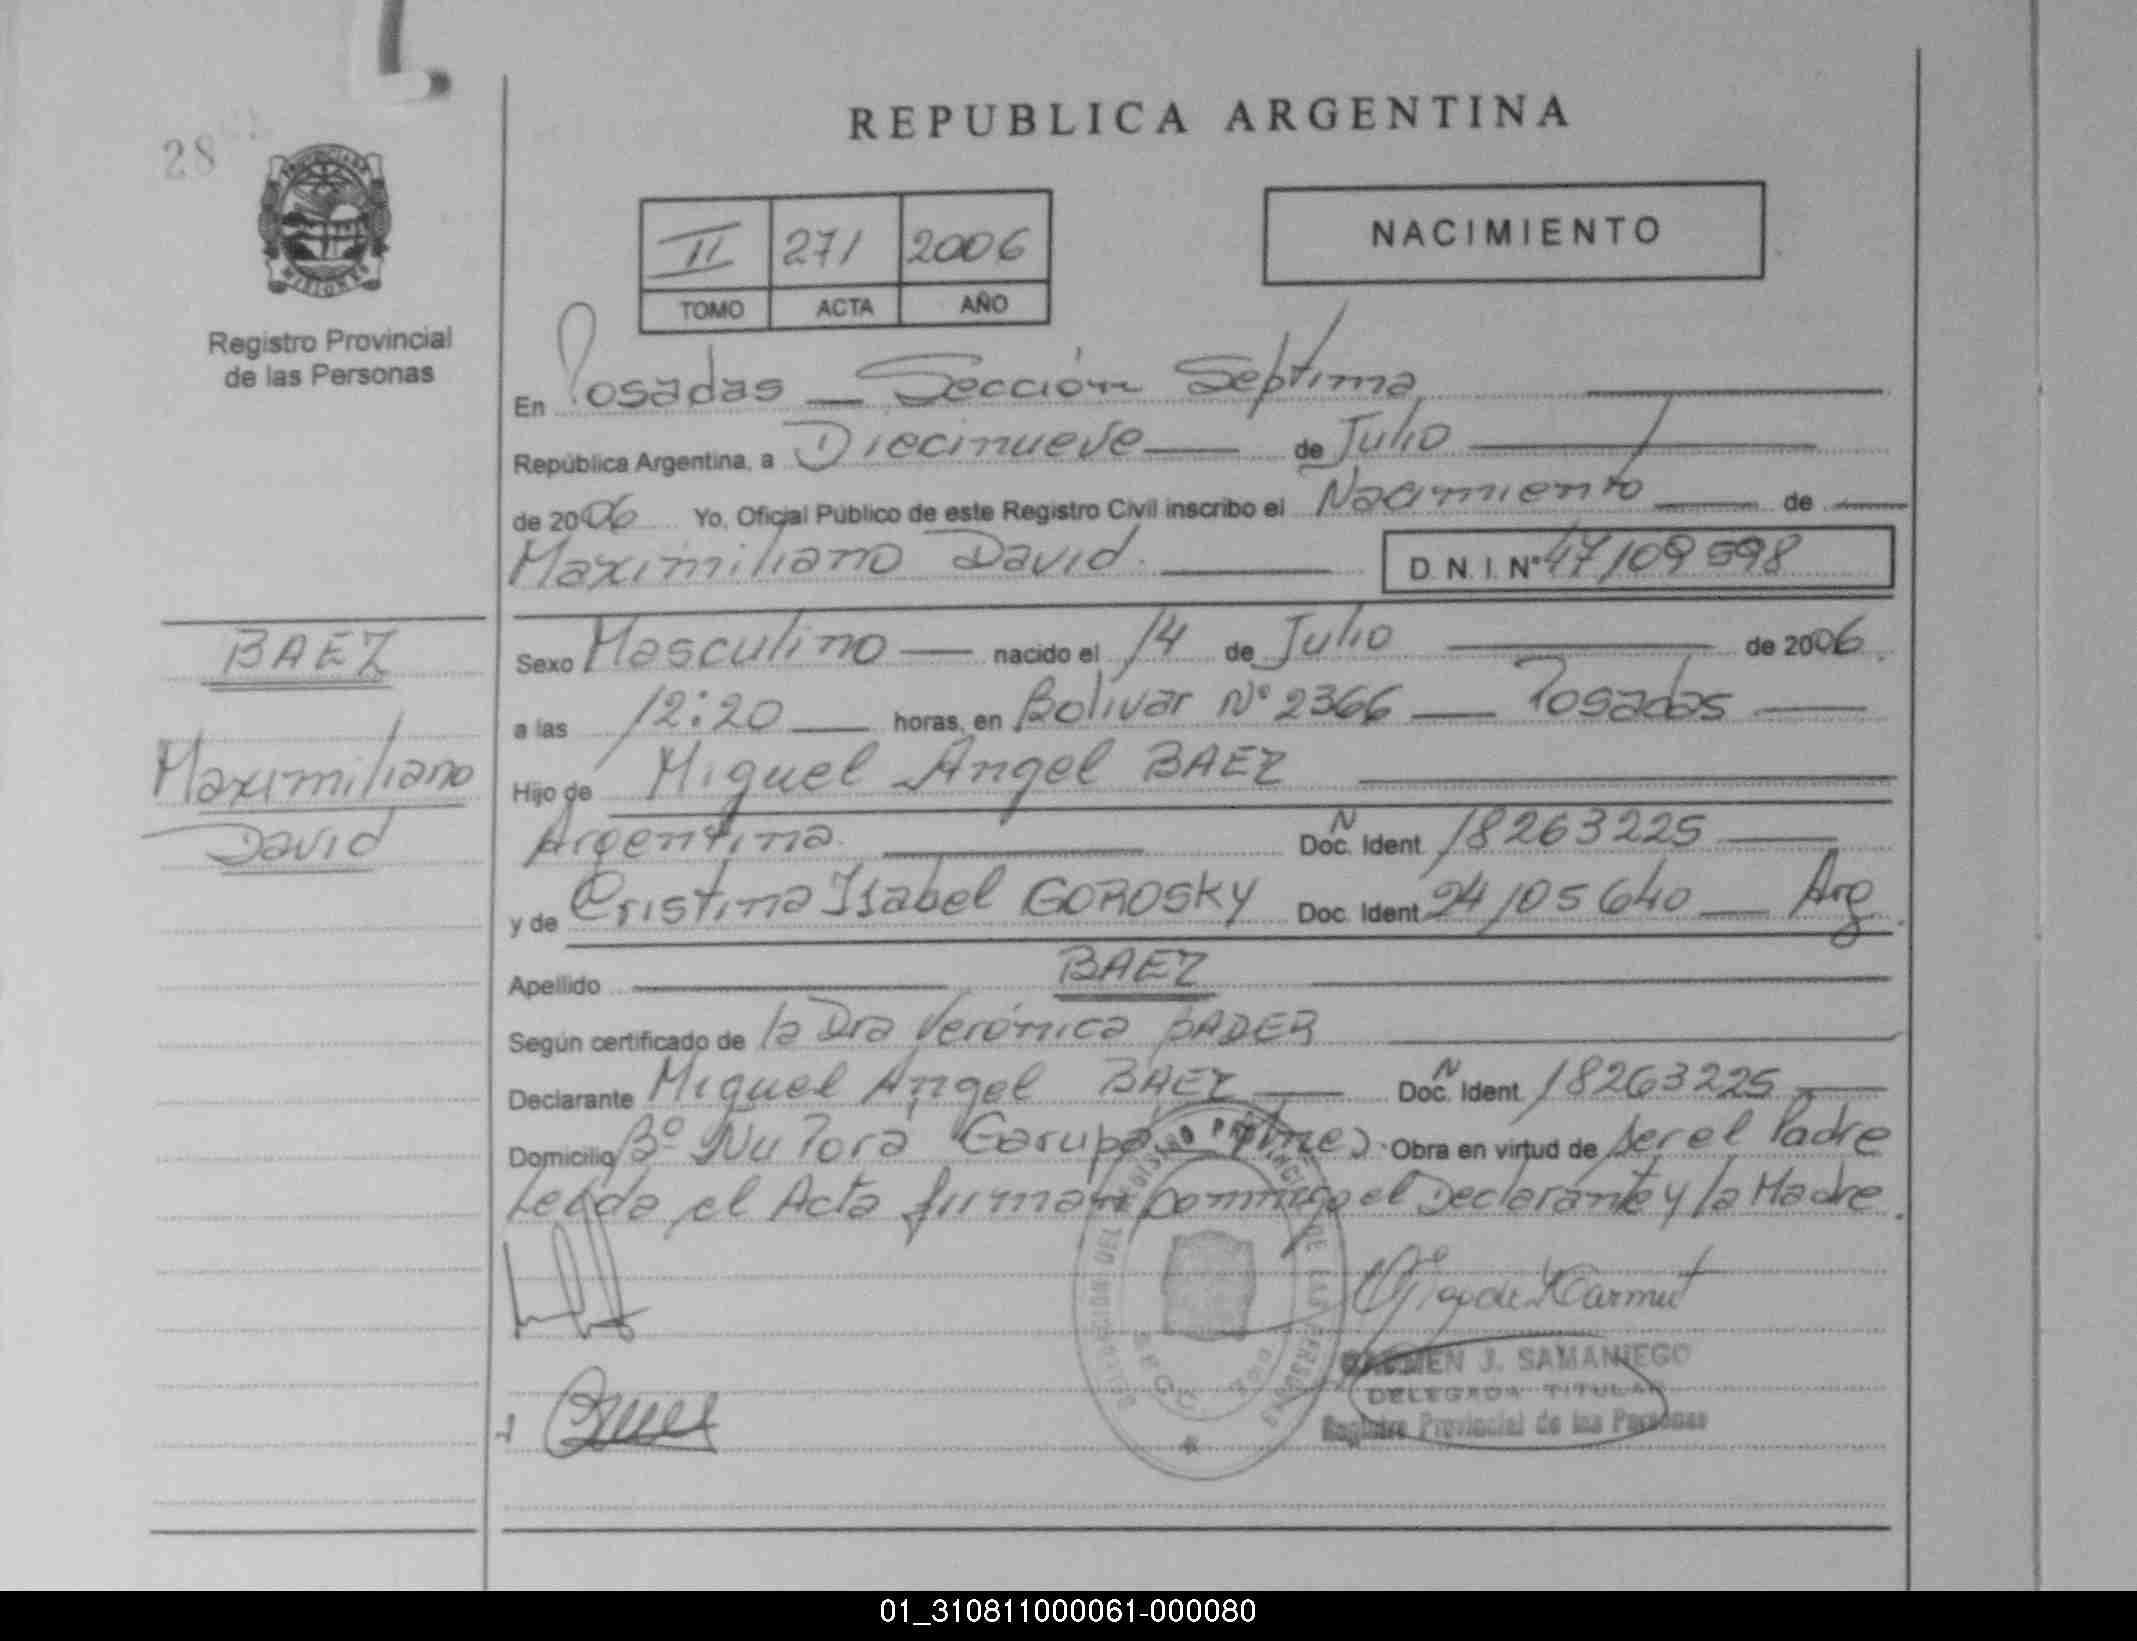 REPUBLICA ARGENTINA
28
Registro Provincial
de las Personas
II 271 2006
TOMO ACTA AÑO
NACIMIENTO
En Posadas — Sección Septima
República Argentina, a Diecinueve — de Julio
de 2006 Yo, Oficial Público de este Registro Civil inscribo el Nacimiento — de —
Maximiliano David. — D. N. I. Nº 47109598
BAEZ
Maximiliano
David
Sexo Masculino — nacido el 14 de Julio — de 2006.
a las 12:20 — horas, en Bolivar Nº 2366 — Posadas —
Hijo de Miguel Angel BAEZ
Argentina. — Doc. N Ident 18263225 —
y de Cristina Isabel GOROSKY Doc. Ident 24105640 — Arg.
Apellido — BAEZ
Según certificado de la Dra Verónica BADER
Declarante Miguel Angel BAEZ — Doc. N Ident 18263225 —
Domicilio Bº Ñu Porá Garupá Mnes. Obra en virtud de ser el Padre
Leída el Acta firman conmigo el Declarante y la Madre.
DELEGACION DEL REGISTRO PROVINCIAL DE LAS PERSONAS
CARMEN J. SAMANIEGO
DELEGADA TITULAR
Registro Provincial de las Personas
01_310811000061-000080